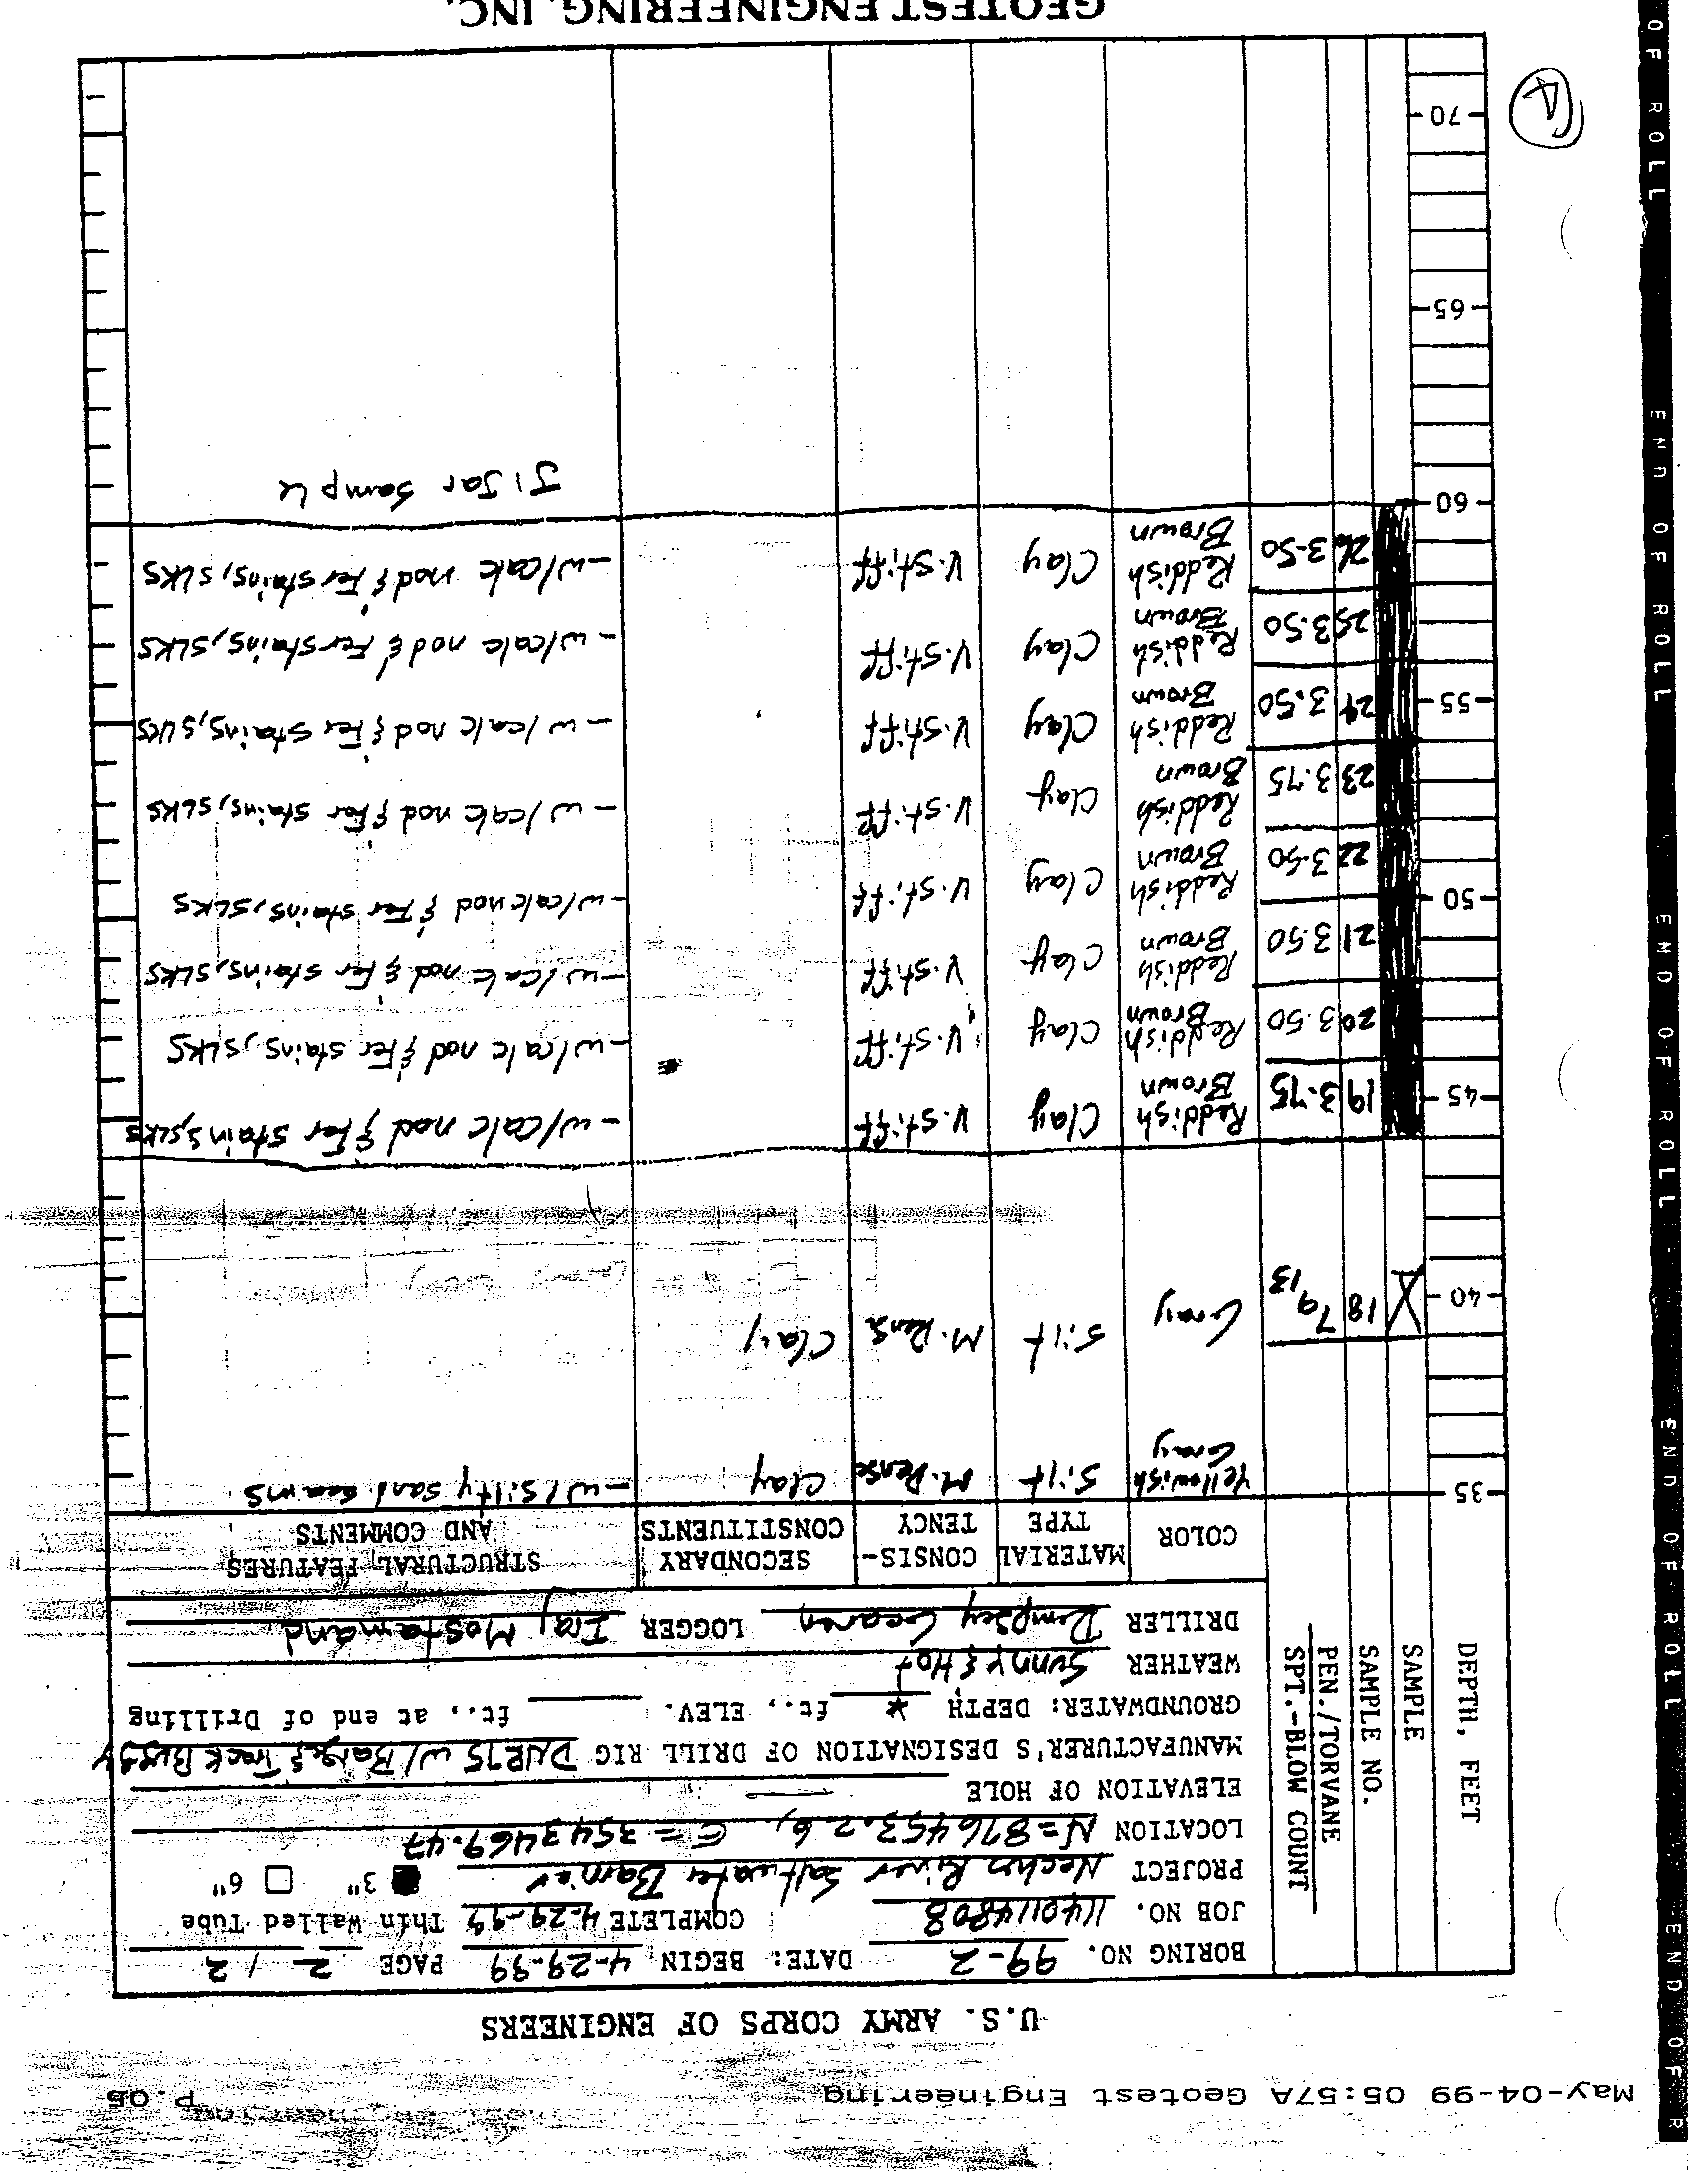 May-04-99 05:57A Geotest Engineering P.05
U.S. ARMY CORPS OF ENGINEERS
BORING NO. 99-2 DATE: BEGIN 4-29-99 PAGE 2 / 2
JOB NO. 1140114808 COMPLETE 4-29-99 Thin Walled Tube
PROJECT River Saltwater Barrier 3" 6"
LOCATION N=876453.26, E=3543469.47
ELEVATION OF HOLE —
MANUFACTURER'S DESIGNATION OF DRILL RIG W/ Barge & Track Buggy
GROUNDWATER: DEPTH * ft., ELEV. ft., at end of Drilling
WEATHER Sunny & Hot
DRILLER Dempsey LOGGER Iraj Mostamand
DEPTH, FEET
SAMPLE
SAMPLE NO.
PEN./TORVANE
SPT.-BLOW COUNT
COLOR
MATERIAL TYPE
CONSIS-
TENCY
SECONDARY
CONSTITUENTS
STRUCTURAL FEATURES
AND COMMENTS
35 Yellowish Silt M.Dense Clay -w/silty sand seams
Gray
40 18 7 9 13 Gray Silt M.Dens Clay
45 19 3.75 Reddish Clay V.stiff -w/calc nod & fer stains, SLKS
Brown
20 3.50 Reddish Clay V.stiff -w/calc nod & fer stains, SLKS
Brown
21 3.50 Reddish Clay V.stiff -w/calc nod & fer stains, SLKS
Brown
50 22 3.50 Reddish Clay V.stiff -w/calc nod & fer stains, SLKS
Brown
23 3.75 Reddish Clay V.stiff -w/calc nod & fer stains, SLKS
Brown
55 24 3.50 Reddish Clay V.stiff -w/calc nod & fer stains, SLKS
Brown
25 3.50 Reddish Clay V.stiff -w/calc nod & fer stains, SLKS
Brown
26 3.50 Reddish Clay V.stiff -w/calc nod & fer stains, SLKS
Brown
60 J: Jar Sample
65
70
4
GEOTEST ENGINEERING, INC.
OF ROLL END OF ROLL END OF ROLL END OF ROLL END OF ROLL END OF R